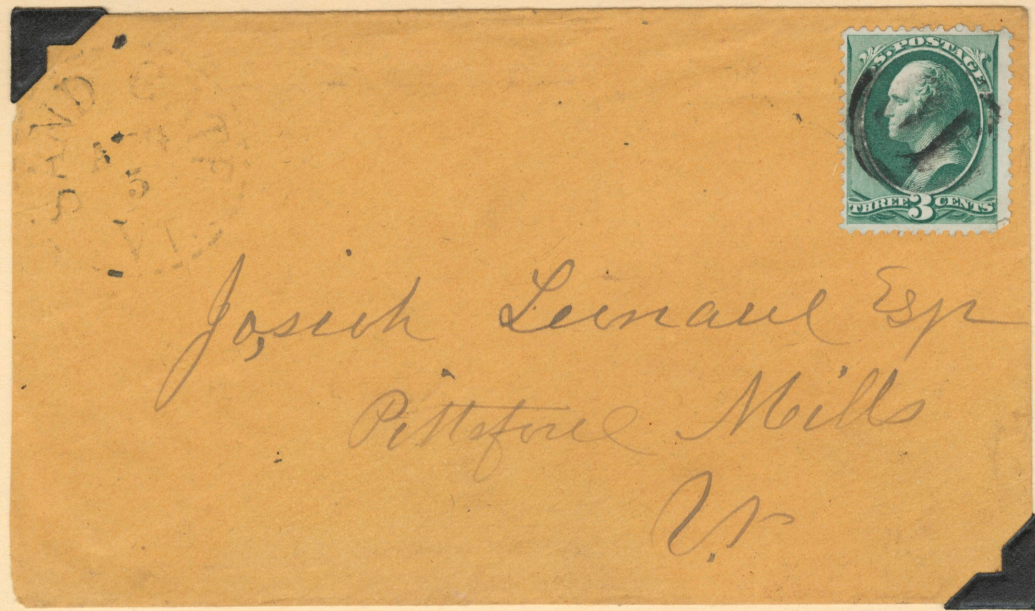 SAND GATE
5
VT
S. POSTAGE
THREE 3 CENTS
Josiah Leonard Esqr
Pittsford Mills
Vt